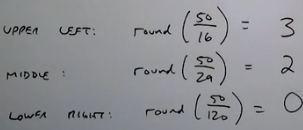 UPPER LEFT: round (50/16) = 3
MIDDLE: round (50/29) = 2
LOWER RIGHT: round (50/120) = 0